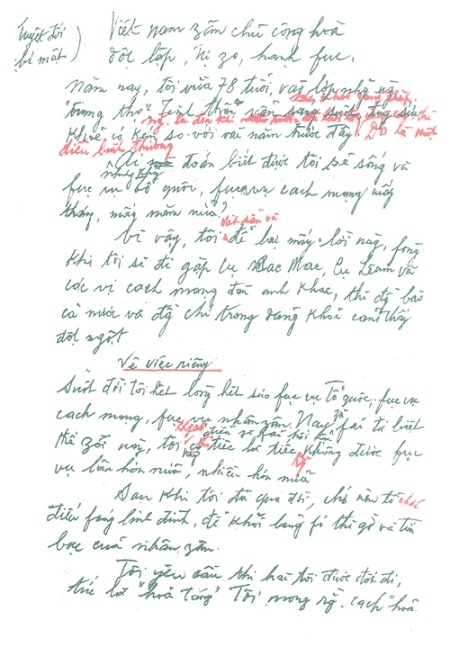 Tuyệt đối
bí mật
Việt nam zân chủ cộng hoà
độc lập, tự zo, hạnh fúc.
Năm nay, tôi vừa 78 tuổi, vào lớp những ng.
"trung thọ". Tinh thần vẫn sáng suốt
khoẻ có kém so với vài năm trước đây. Đó là một
điều bình thường
Ai mà đoán biết được tôi sẽ sống và
fục vụ tổ quốc, fục vụ cách mạng mấy
tháng, mấy năm nữa?
Vì vậy, tôi để lại mấy lời này, fòng
khi tôi sẽ đi gặp cụ Các Mác, cụ Lênin và
các vị cách mạng đàn anh khác, thì đồng bào
cả nước và đồng chí trong đảng khỏi cảm thấy
đột ngột.
Về việc riêng
Suốt đời tôi hết lòng hết sức fục vụ Tổ quốc, fục vụ
cách mạng, fục vụ nhân zân. Nay zù fải từ biệt
thế zới này, tôi không có điều gì fải hối hận
chỉ tiếc là tiếc rằng không được fục
vụ lâu hơn nữa, nhiều hơn nữa
Sau khi tôi đã qua đời, chớ nên tổ chức
điếu fúng linh đình, để khỏi lãng fí thì giờ và tiền
bạc của nhân zân.
Tôi yêu cầu thi hài tôi được đốt đi,
tức là "hoả táng". Tôi mong rằng cách "hoả